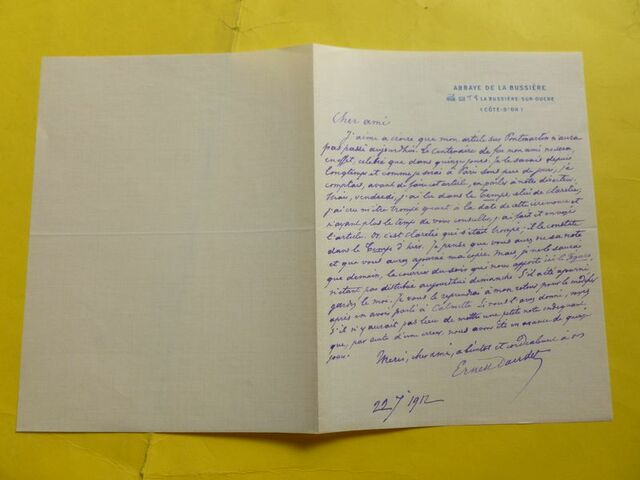 ABBAYE DE LA BUSSIÈRE
LA BUSSIÈRE-SUR-OUCHE
(CÔTE-D'OR)
Cher ami
J'aime a croire que mon article sur Pontmartin n'aura
pas passé aujourd'hui. Le Centenaire de feu mon ami ne sera
en effet, celebré que dans quinze jours. Je le savais depuis
longtemps et comme je serai à Paris dans peu de jours, je
comptais, avant de faire cet article, en parler à notre directeur.
Mais, vendredi, j'ai lu dans le Temps celui de Claretie,
j'ai cru m'être trompé quant à la date de cette ceremonie et
n'ayant plus le temps de vous consulter, j'ai fait et envoyé
l'article. Or c'est Claretie qui s'était trompé, il le constate
dans le Temps d'hier. Je pense que vous avez vu sa note
et que vous aurez ajourné ma copie. Mais, je ne le saurai
que demain, le courrier du soir qui nous apporte ici le Figaro,
n'étant pas distribué aujourd'hui dimanche. S'il a été ajourné
gardez le moi. Je vous le reprendrai à mon retour pour le modifier
après en avoir parlé à Calmette. Si vous l'avez donné, voyez
s'il n'y aurait pas lieu de mettre une petite note indiquant
que, par suite d'une erreur, nous avons été en avance de quinze
jours.
Merci, cher ami, a bientot et cordialement à vous
Ernest Daudet
22 7 1912